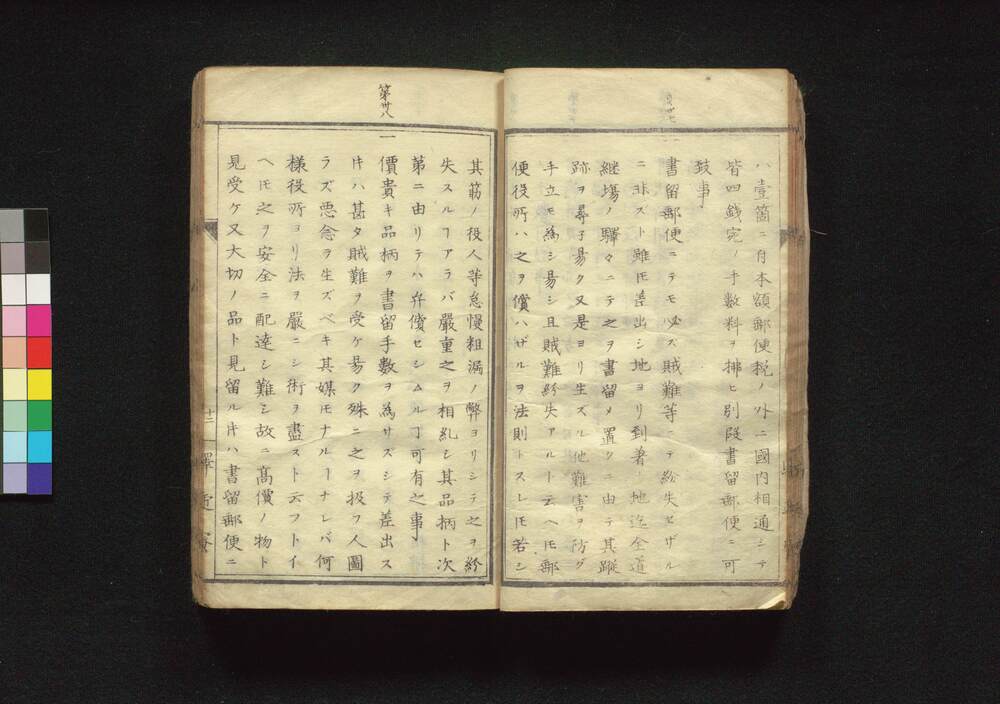 ハ壹箇ニ付本額郵便税ノ外ニ國内相通シテ
皆四錢宛ノ手數料ヲ拂ヒ別段書留郵便ニ可
致事
書留郵便ニテモ必ズ賊難等ニテ紛失セザル
ニ非ズト雖𪜈差出シ地ヨリ到着ノ地迄全道
継場ノ驛々ニテ之ヲ書留メ置クニ由テ其蹤
跡ヲ尋子易ク又是ヨリ生ズル他難害ヲ防グ
手立モ為シ易シ且賊難紛失アルヿ云ヘ𪜈郵
便役所ハ之ヲ償ハザルヲ法則トスレ𪜈若シ
其筋ノ役人等怠慢粗漏ノ弊ヨリシテ之ヲ紛
失スルヿアラバ嚴重之ヲ相糺シ其品柄ト次
第ニ由リテハ弁償セシムルヿ可有之事
第卅八
一
價貴キ品柄ヲ書留手數ヲ為サズシテ差出ス
片ハ甚タ賊難ヲ受ケ易ク殊ニ之ヲ扱フ人圖
ラズ悪念ヲ生ズベキ其媒𪜈ナルヿナレバ何
様役所ヨリ法ヲ嚴ニシ術ヲ盡スト云フトイ
ヘ𪜈之ヲ安全ニ配達シ難シ故ニ高價ノ物ト
見受ケ又大切ノ品ト見留ル片ハ書留郵便ニ
十二
驛逓寮